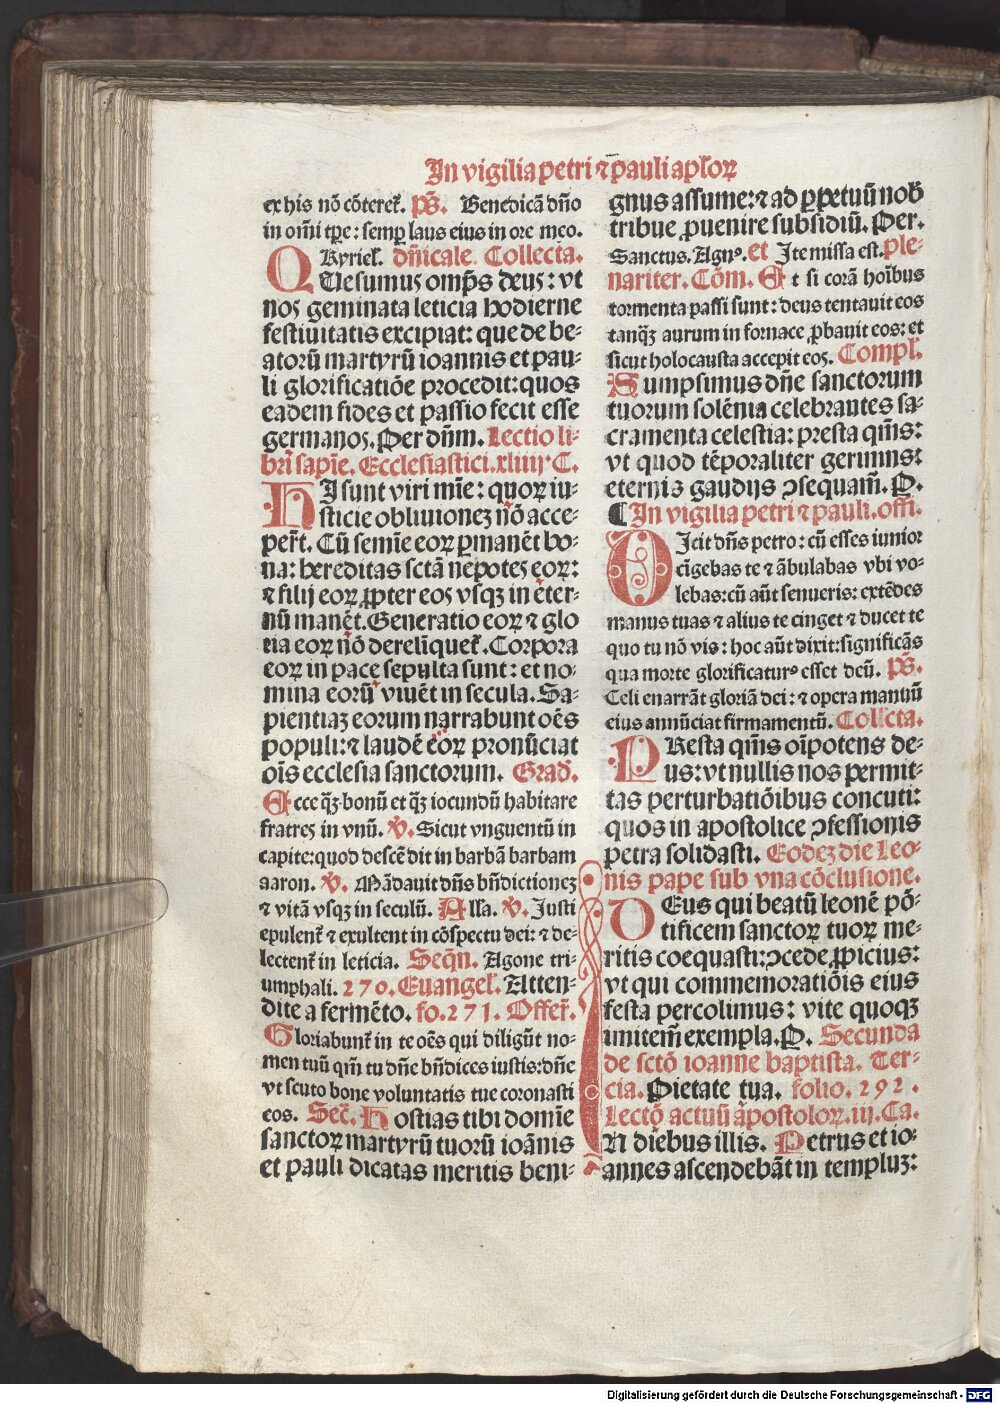 In vigilia petri ⁊ pauli apl'oꝝ
ex his nō cōteret᷑. p̄s. Benedicā dn̄o
in om̄i tꝑe: semꝑ laus eius in ore meo.
Kyriel'. dn̄icale. Collecta.
QUesumus omp̄s deus: vt
nos geminata leticia hodierne
festiuitatis excipiat: que de be-
atorū martyrū ioannis et pau-
li glorificatiōe procedit: quos
eadem fides et passio fecit esse
germanos. Per dn̄m. Lectio li-
bri sapīe. Ecclesiastici. xliiij. C.
HI sunt viri mīe: quoꝝ iu-
sticie obliuionez nō acce-
per̄t. Cū semīe eoꝝ ꝑmanēt bo-
na: hereditas sctā nepotes eoꝝ:
⁊ filij eoꝝ ꝓpter eos vsqꝫ in eter-
nū manēt. Generatio eoꝝ ⁊ glo
ria eoꝝ nō derelīquet᷑. Corpora
eoꝝ in pace sepulta sunt: et no-
mina eorū viuēt in secula. Sa-
pientiaz eorum narrabunt oēs
populi: ⁊ laudē eoꝝ pronūciat
oīs ecclesia sanctorum. Grad'.
Ecce qꝫ bonū et qꝫ iocundū habitare
fratres in vnū. ℣. Sicut vnguentū in
capite: quod descēdit in barbā barbam
aaron. ℣. Mādauit dn̄s bn̄dictionez
⁊ vitā vsqꝫ in seculū. All'a. ℣. Justi
epulent᷑ ⁊ exultent in cōspectu dei: ⁊ de-
lectent᷑ in leticia. Seqn̄. Agone tri-
umphali. 270. Euangel'. Atten-
dite a fermēto. fo. 271. Offer̄.
Gloriabunt᷑ in te oēs qui diligūt no-
men tuū qm̄ tu dn̄e bn̄dices iustis: dn̄e
vt scuto bone voluntatis tue coronasti
eos. Sec̄. Hostias tibi domīe
sanctoꝝ martyrū tuorū ioānis
et pauli dicatas meritis beni-
gnus assume: ⁊ ad ꝑpetuū nob'
tribue ꝓuenire subsidiū. Per.
Sanctus. Agnꝰ. et Ite missa est. ple-
nariter. Cōm. Et si corā hoībus
tormenta passi sunt: deus tentauit eos
tanqꝫ aurum in fornace ꝓbauit eos: et
sicut holocausta accepit eos. Compl'.
Sumpsimus dn̄e sanctorum
tuorum solēnia celebrantes sa-
cramenta celestia: presta qm̄s:
vt quod tēporaliter gerimus:
eternis gaudijs ↄsequam̄. P.
¶ In vigilia petri ⁊ pauli. offi.
DIcit dn̄s petro: cū esses iunior
cīgebas te ⁊ ābulabas vbi vo-
lebas: cū aūt senueris: extēdes
manus tuas ⁊ alius te cinget ⁊ ducet te
quo tu nō vis: hoc aūt dixit: significās
qua morte glorificaturꝰ esset deū. p̄s.
Celi enarrāt gloriā dei: ⁊ opera manuū
eius annūciat firmamentū. Coll'cta.
PResta qm̄s oīpotens de-
us: vt nullis nos permit-
tas perturbatiōibus concuti:
quos in apostolice ↄfessionis
petra solidasti. Eodez die Leo-
nis pape sub vna cōclusione.
DEus qui beatū leonē pō-
tificem sanctoꝝ tuoꝝ me-
ritis coequasti: ↄcede ꝓpicius:
vt qui commemoratiōis eius
festa percolimus: vite quoqꝫ
imitem̄ exempla. P. Secunda
de sctō ioanne baptista. Ter-
cia. Pietate tua. folio. 292.
Lectō actuū apostoloꝝ. iij. Ca.
IN diebus illis. Petrus et io-
annes ascendebāt in templuꝫ:
Digitalisierung gefördert durch die Deutsche Forschungsgemeinschaft - DFG